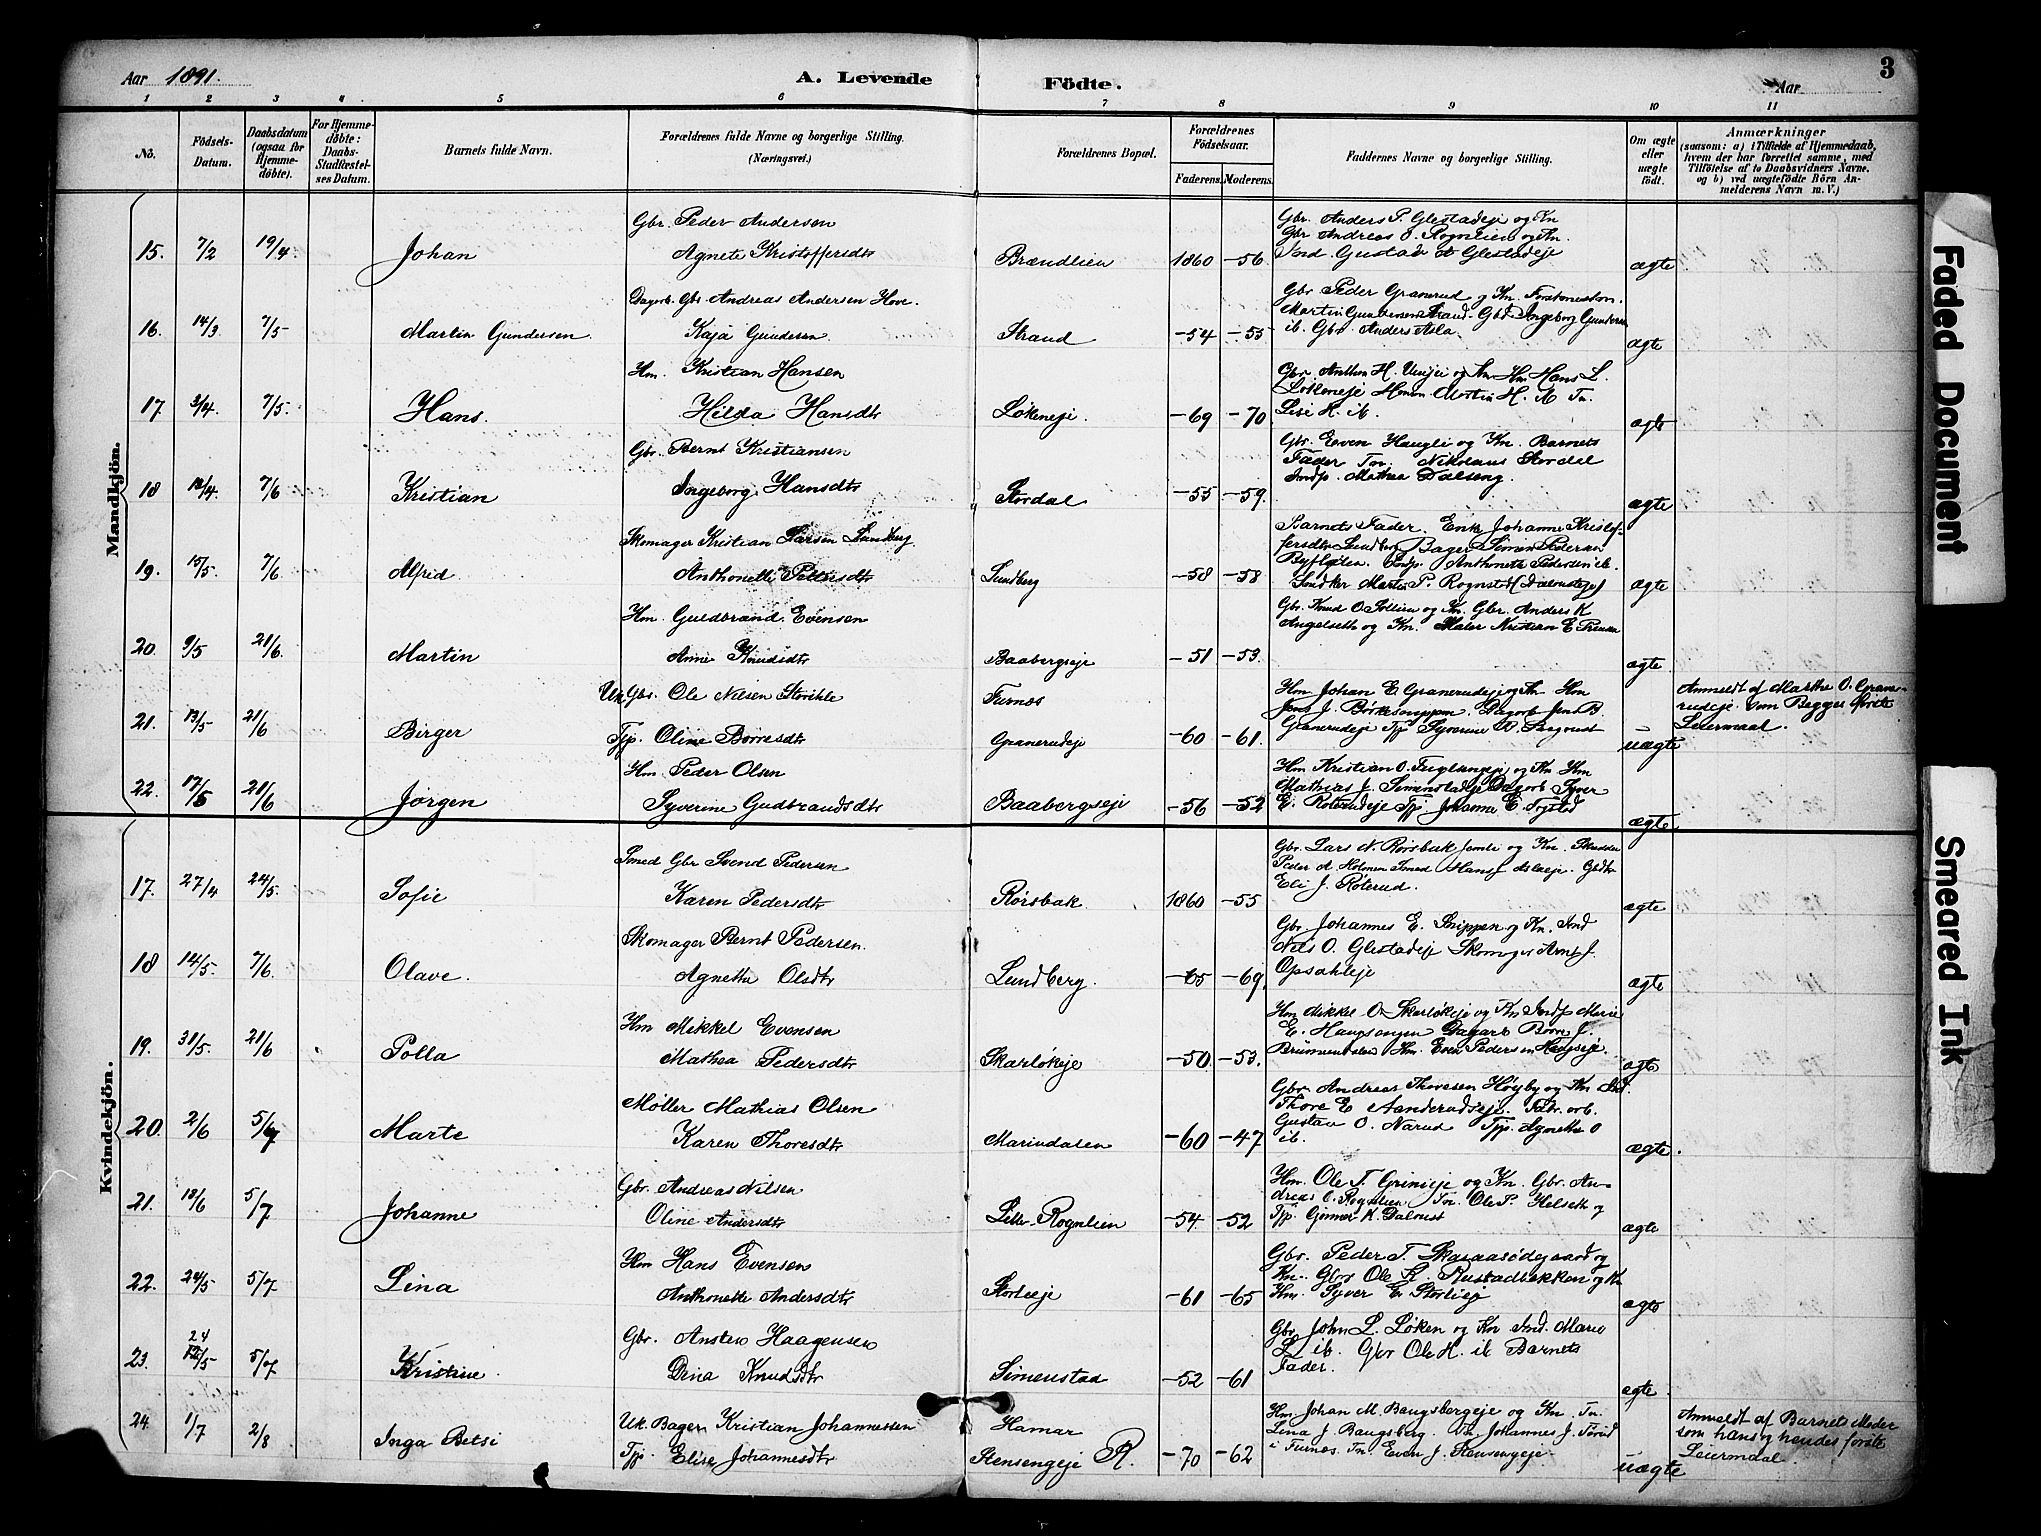 Aar 1891.
A. Levende Födte.
Aar
3
1 2 3 4. 5 6 7 8 9 10 11
No.
Födsels-Datum.
Daabsdatum (ogsaa for Hjemmedøbte).
For Hjemmedøbte: Daabs-Stadfæstelses Datum.
Barnets fulde Navn.
Forældrenes fulde Navne og borgerlige Stilling. (Næringsvei.)
Forældrenes Bopæl.
Forældrenes Födselsaar.
Faderens. Moderens.
Faddernes Navne og borgerlige Stilling.
Om ægte eller uægte födt.
Anmærkninger (saasom: a) i Tilfælde af Hjemmedaab, hvem der har forrettet samme, med Tilföielse af to Daabsvidners Navne. og b) ved uægtefödte Börn Anmelderens Navn m. V.)
Mandkjön.
15. 7/2 19/4. Johan
Gbr. Peder Andersen
Agnete Kristoffersdtr
Brændlien 1860 -56
Gbr. Anders P. Glestadeje og Kn
Gbr Andreas O. Rognlien og Kn.
Gustav Glestadeje
ægte
16. 14/3 7/5 Martin Gundersen
Dagarb. Gbr. Andreas Andersen Hove.
Kaja Gundersen.
Strand -54 -55
Gbr Peder Granerud og Kn.
Martin Gundersen Strand. Ingeborg Gundersen
ib. Gbr. Anders Asla.
ægte
17. 3/4. 7/5. Hans.
Hm. Kristian Hansen
Hilda Hansdtr
Løkeneje. -69 -70
Hm Hans L.
Løkeneje Martin H.
Lise K. ib.
ægte
18 12/4. 7/6 Kristian
Gbr. Bernt Kristiansen
Ingeborg Hansdtr
Stordal -55 -59.
Gbr. Even Haugli og Kn. Barnets
Fader Tn. Nikolaus Stordal
Indp. Mathea Dalseng.
ægte
19. 15/5. 7/6 Alfred
Skomager Kristian Larsen Lundberg
Anthonette Pettersdtr
Lundberg -58 -58
Barnets Fader. Enke Johanne Kristof-
fersdtr Lundberg Bager Simen Pedersen
Anthonette Pedersen ib.
ægte
20. 9/5 21/6. Martin
Hm. Guldbrand Evensen
Anne Knudsdtr
Baabergseje -51 -53.
Gbr. Knud O. Sollien og Kn. Gbr. Anders K
Angelseth og Kn. Maler Kristian E
ægte
21. 13/5 21/6 Birger
Uk. Gbr. Ole Nilsen Storihle
Tjp. Oline Borresdtr
Furnæs
Graneudeje -60 -61.
Hm Johan E Granerudeje og Kn Hm
Jens J. Dagarb Jens B.
Granerudeje Tjp Syverine
uægte
Anmeldt af Marthe O. Grane-
rudeje. som Begges første
Leiermaal.
22. 17/5 21/6 Jørgen
Hm. Peder Olsen
Syverine Gudbrandsdtr
Baabergseje -56 -52
Hm Kristian O. Fuglsengeje og Kn Hm
Mathias J. Simenstadeje Dagarb Syver
E. Tjp Johanne E.
ægte
Kvindekjön.
17. 27/4 24/5. Sofie
Smed Gbr Svend Pedersen
Karen Pedersdtr
Rørsbak 1860 -55
Gbr. Lars N. Rørsbak og Kn. Skrædder
Peder A Holmen Smed Hans J Aslaeje.
Eli J. Røterud.
ægte
18 14/5. 7/6. Olave.
Skomager Bernt Pedersen.
Agnethe Olsdtr
Lundberg. -65 -69.
Gbr Johannes E. Snippen og Kn.
Nils O. Glestadeje Skomager Arne J.
Opsahleje
ægte
19. 31/5. 21/6 Polla
Hm Mikkel Evensen
Mathea Pedersdtr
Skarløkeje -50. -53.
Hm Mikkel O. Skarløkeje og Kn Indp Marie
E. Haugsengen Dagarb Børre J.
Hm. Even Pedersen Haugseje.
ægte
20. 2/6 5/7 Marte
Møller Mathias Olsen
Karen Thoresdtr
Mariudalen -60 -47
Gbr. Andreas Thoresen Høyby og Kn
Thore E Aanderudseje. Fabr. arb.
Gustav O. Narud Tjp. Agnethe O
ib.
ægte.
21. 18/6 5/7 Johanne
Gbr. Andreas Nilsen
Oline Andersdtr
Lille-Rognlien -54 -52
Hm. Ole T. Grinieje og Kn. Gbr. An-
dreas O. Rognlien Tn. Ole P. Helseth og
Tjp. Gunnor K. Dalrust
ægte
22. 24/5 5/7 Lina
Hm Hans Evensen
Anthonette Andersdtr
Storlieje -61 -65
Gbr. Peder T. Skaaraasødegaard og
Kn. Gbr Ole Rustadbakken og Kn
Hm. Syver E. Storlieje
ægte
23. 24 12/5 5/7 Kristine
Gbr. Ansten Haagensen
Dina Knudsdtr
Simenstad -52 -61
Gbr John L. Løken og Kn Ind. Marie
L ib. Gbr Ole H. ib Barnets
Fader.
ægte.
24. 1/7 2/8 Inga Betsi
Uk. Bager Kristian Johannessen
Tjp. Elise Johannesdtr
Hamar
Stensengeje R. -70 -62
Hm. Johan M. Baugsbergeje og Kn. Tn.
Lina J. Baugsberg. Johannes J.
i Furnæs. Tn. Even J. Stensengeje.
uægte
Anmeldt af Barnets Moder
som hans og hendes første
Leiermaal.
Faded Document
Smeared Ink